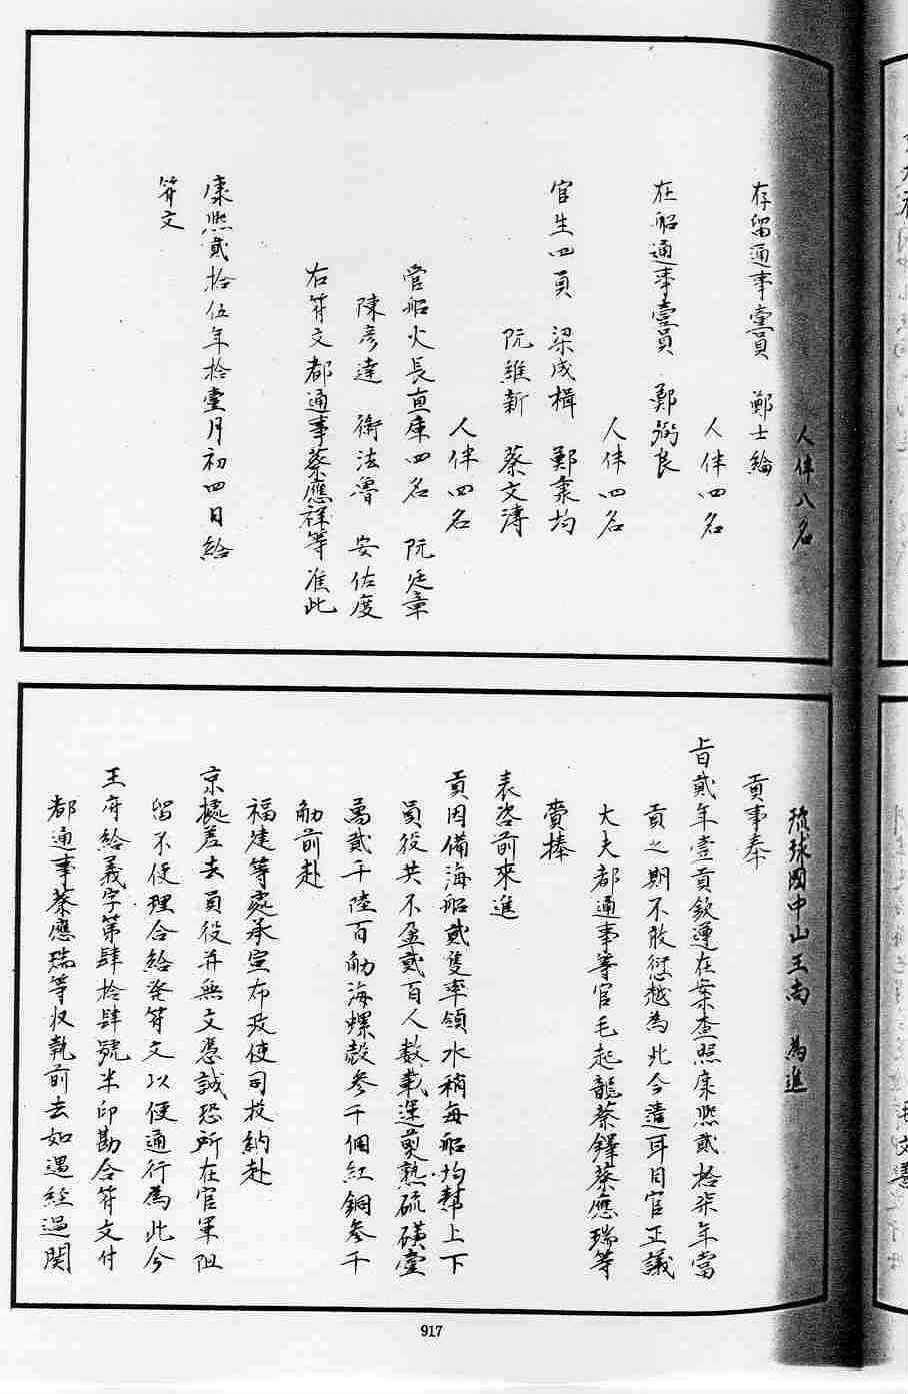 人伴八名
存留通事壹員　鄭士綸
人伴四名
在船通事壹員　鄭弼良
人伴四名
官生四員　梁成楫　鄭秉均
阮維新　蔡文溥
人伴四名
管船火長直庫四名　阮廷章
陳彥達　衛法魯　安佑度
右符文都通事蔡應祥等准此
康熙貳拾伍年拾壹月初四日給
符文
琉球國中山王尚　為進
貢事奉
上旨貳年壹貢欽遵在案查照康熙貳拾柒年當
貢之期不敢愆越為此今遣耳目官正議
大夫都通事等官毛起龍蔡鐸蔡應瑞等
賫捧
表咨前來進
貢因備海船貳隻率領水稍每船均幫上下
員役共不盈貳百人數載運煎熟硫磺壹
萬貳千陸百觔海螺殼參千個紅銅參千
觔前赴
福建等處承宣布政使司投納赴
京橅差去員役并無文憑誠恐所在官軍阻
留不便理合給發符文以便通行為此今
王府給義字第肆拾肆號半印勘合符文付
都通事蔡應瑞等收執前去如遇經過関
917